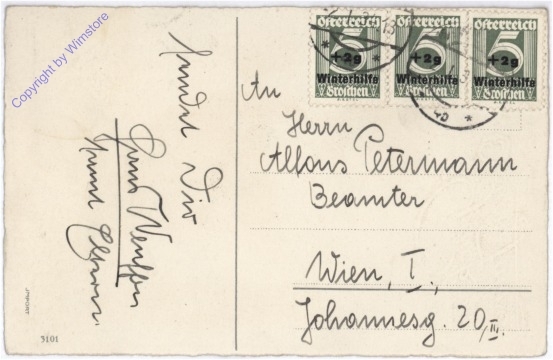 Copyright by Wimstore
sendet Dir
samt Eltern
Österreich Österreich Österreich
5 5 5
+2g +2g +2g
Winterhilfe Winterhilfe Winterhilfe
Groschen Groschen Groschen
An
Herrn
Alfons Petermann
Beamter
Wien, I.,
Johannesg. 20/III.
IMPORT
5101